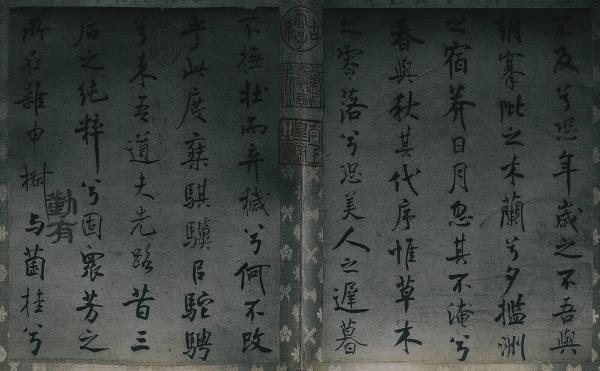 不及兮恐年歲之不吾與
朝搴阰之木蘭兮夕攬洲
之宿莽日月忽其不淹兮
春與秋其代序惟草木
之零落兮恐美人之遲暮
不撫壯而弃穢兮何不改
乎此度乘騏驥㠯駝騁
兮来吾道夫先路昔三
后之純粹兮固衆芳之
所在雜申椒与菌桂兮
勤有